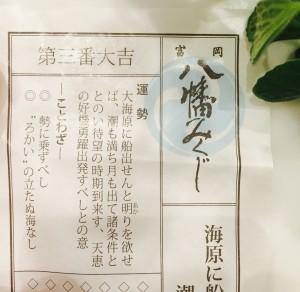 富岡
八幡みくじ
海原に船
潮
第三番大吉
運勢
大海原に船出せんと明りを欲せ
ば、潮も満ち月も出て諸条件と
とのい待望の時期到来す、天恵
の好機勇躍出発すべしとの意
―ことわざ―
◎ 勢に乗ずべし
◎ “ろかい”の立たぬ海なし